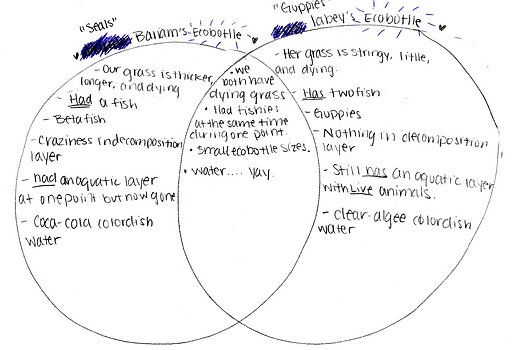 "Seals"
Bariam's Ecobottle
- Our grass is thicker,
longer, and dying
- Had a fish
- Beta fish
- Craziness in decomposition
layer
- had an aquatic layer
at one point but now gone
- Coca-cola colordish
water
• we
both have
dying grass
• Had fishies
at the same time
during one point.
• small ecobottle sizes.
• water.... yay.
"Guppies"
Iabey's Ecobottle
- Her grass is stringy, little,
and dying.
- Has two fish
- Guppies
- Nothing in decomposition
layer
- Still has an aquatic layer
with Live animals.
- clear-algee colordish
water